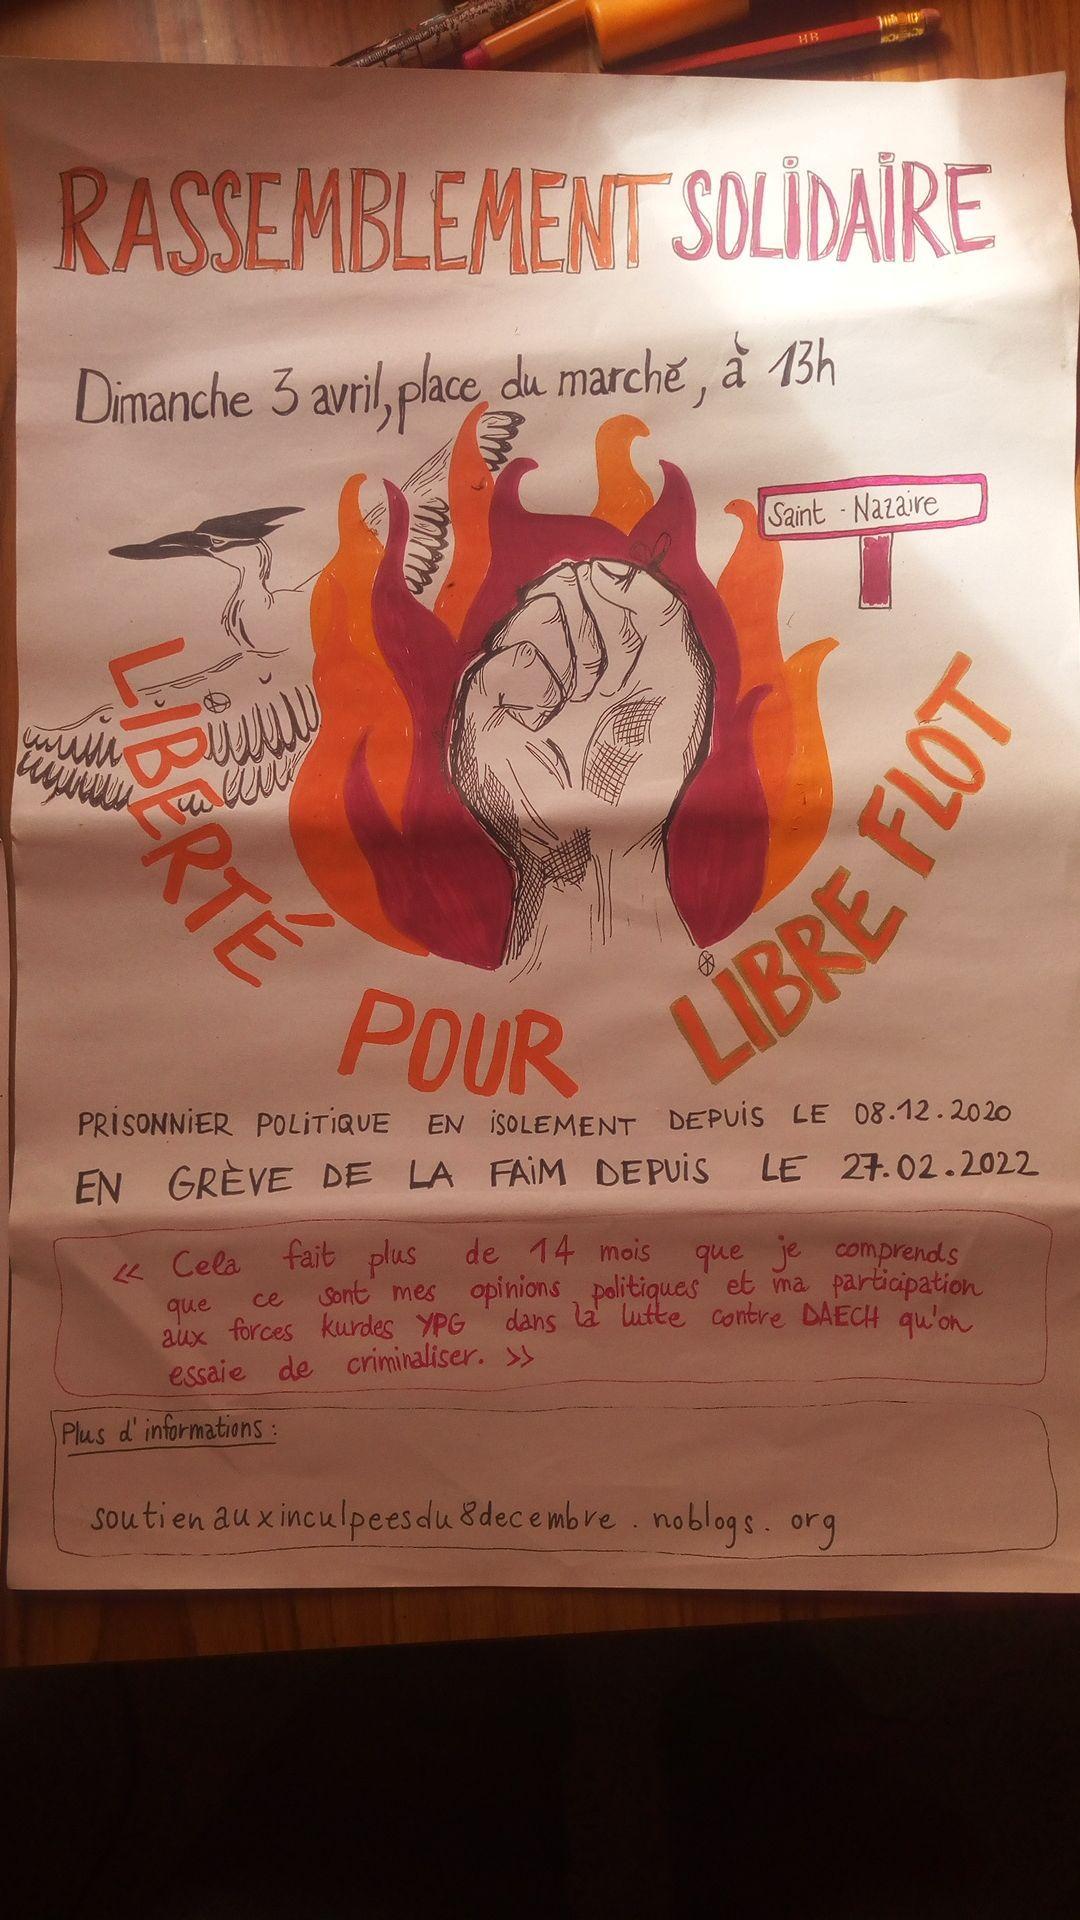 RASSEMBLEMENT SOLIDAIRE
Dimanche 3 avril, place du marché, à 13h
Saint - Nazaire
LIBERTÉ
POUR
LIBRE FLOT
PRISONNIER POLITIQUE EN ISOLEMENT DEPUIS LE 08.12.2020
EN GRÈVE DE LA FAIM DEPUIS LE 27.02.2022
« Cela fait plus de 14 mois que je comprends
que ce sont mes opinions politiques et ma participation
aux forces kurdes YPG dans la lutte contre DAECH qu'on
essaie de criminaliser. »
Plus d'informations :
soutienauxinculpeesdu8decembre.noblogs.org
HB